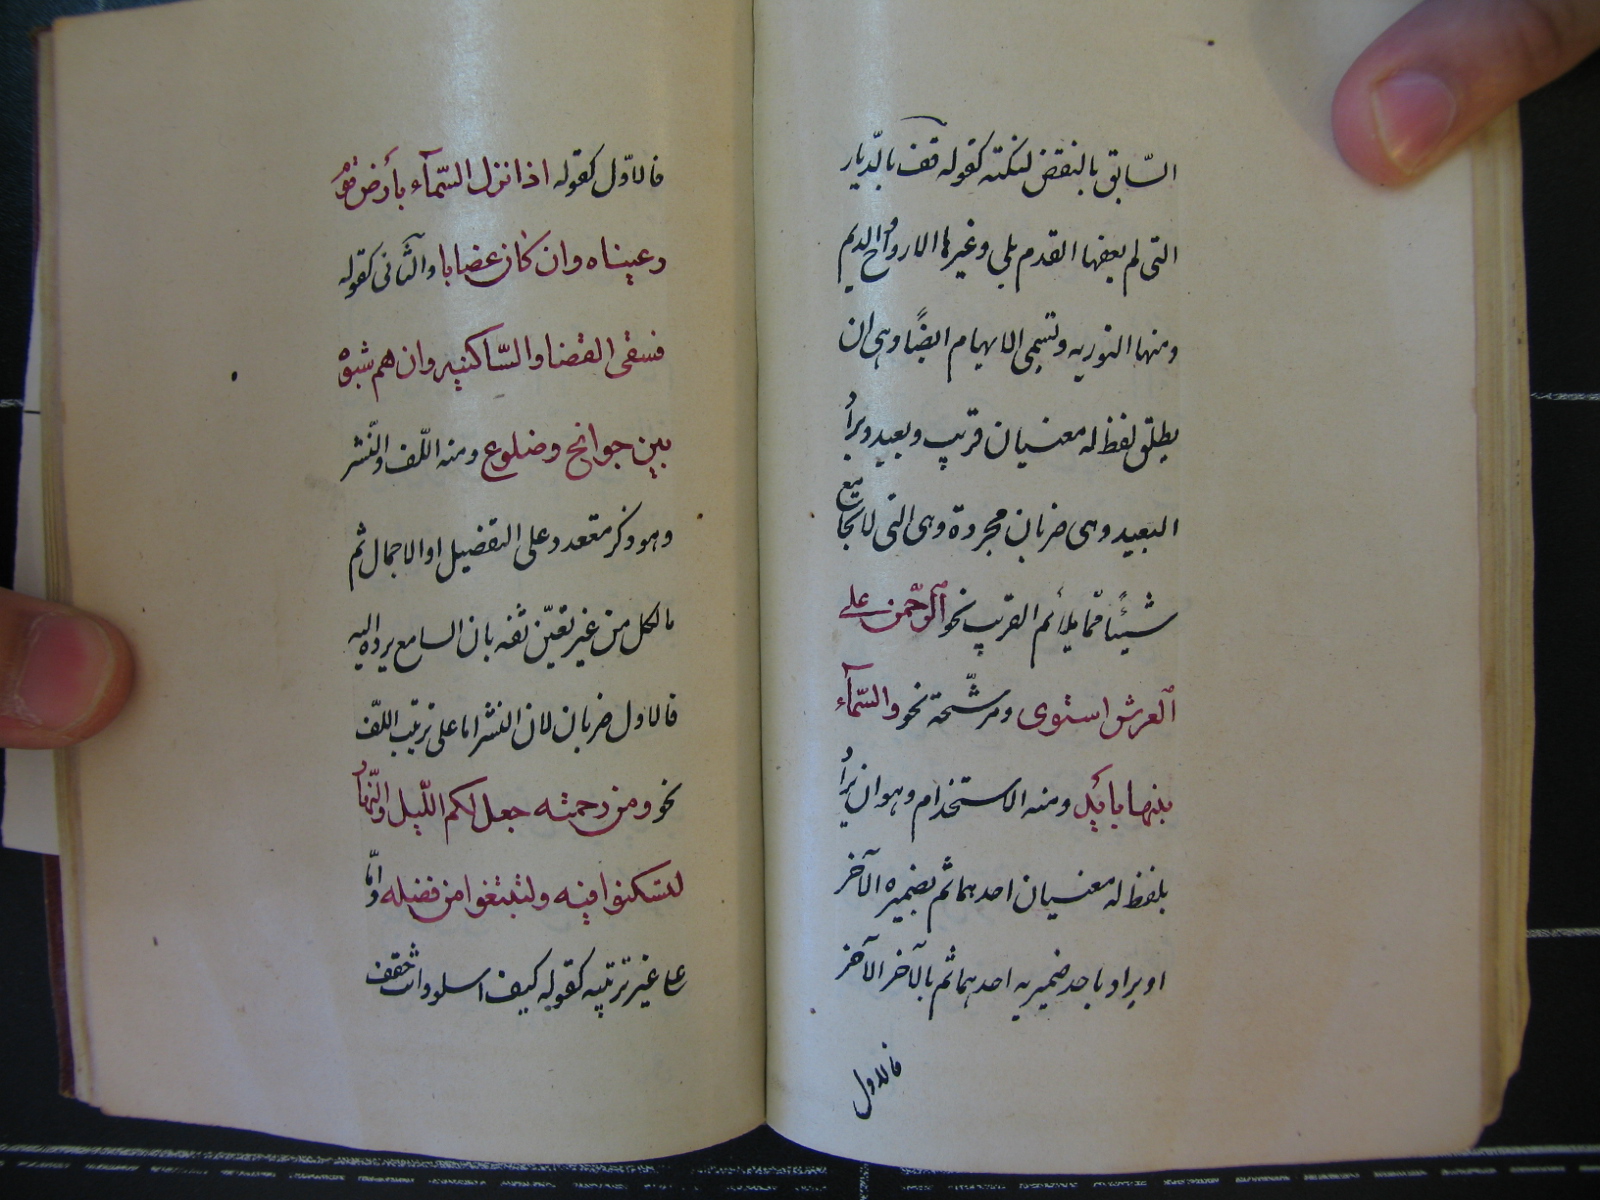 السّابق بالنقض لنكتة كقوله قف بالدّيار
التى لم يعفها القدم بلى وغيرها الارواح الديم
ومنها التوريه وتسمى الايهام ايضًا وهى ان
يطلق لفظ له معنيان قريب وبعيد ويراد
البعيد وهى ضربان مجردة وهى التى لا تجامع
شيئًا ممّا يلائم القريب نحو الرّحمن على
العرش استوى ومرشّحة نحو والسّمآء
بنيناها بأيد ومنه الاستخدام وهو ان يراد
بلفظ له معنيان احدهما ثم بضميره الآخر
او يراد باحد ضميريه احدهما ثم بالآخر الآخر
فالاول
فالاوّل كقوله اذا نزل السّمآء بأرض قوم
رعيناه وان كان غضابا والثّانى كقوله
فسقى الغضا والسّاكنيه وان هم شبوه
بين جوانح وضلوع ومنه اللّف والنّشر
وهو ذكر متعدد على التفضيل او الاجمال ثم
مالكل من غير تعيّن ثقه بان السامع يرده اليه
فالاول ضربان لان النشر اما على ترتيب اللفّ
نحو ومن رحمته جعل لكم اللّيل والنّهار
لتسكنوا فيه ولتبتغوا من فضله وامّا
على غير ترتيبه كقوله كيف اسلو وانت حقف